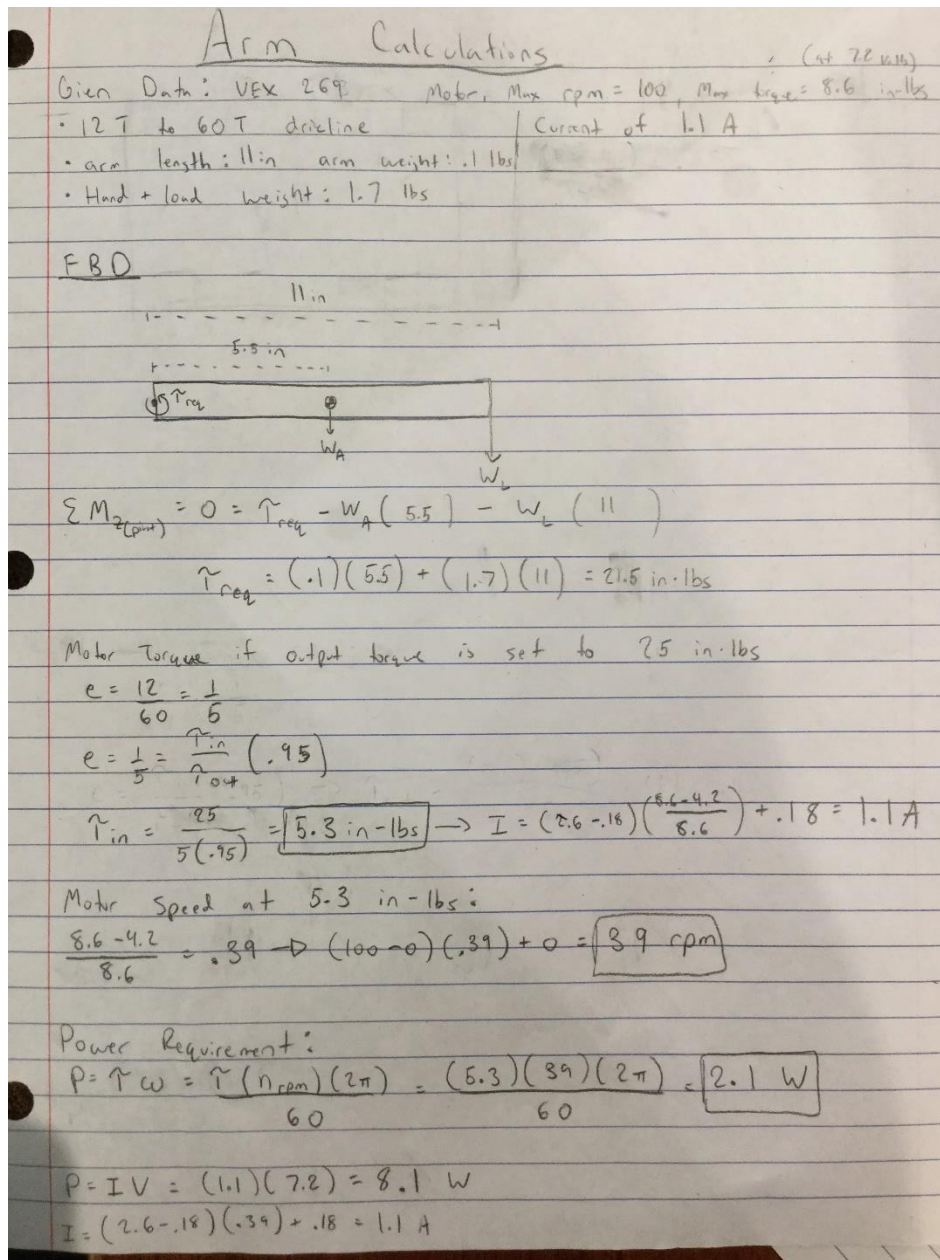 Arm Calculations
(at 7.2 volts)
Gien Data: VEX 269 Motor, Max rpm = 100, Max torque = 8.6 in-lbs
· 12T to 60T driveline Current of 1.1 A
· arm length: 11in arm weight: .1 lbs
· Hand + load weight: 1.7 lbs
FBD
11 in
5.5 in
τreq
WA
WL
ΣMz(point) = 0 = τreq - WA(5.5) - WL(11)
τreq = (.1)(5.5) + (1.7)(11) = 21.5 in·lbs
Motor Torque if output torque is set to 25 in·lbs
e = 12/60 = 1/5
e = 1/5 = τin/τout (.95)
τin = 25/5(.95) = 5.3 in-lbs → I = (2.6-.18)(8.6-4.2/8.6) + .18 = 1.1 A
Motor Speed at 5.3 in-lbs:
8.6-4.2/8.6 = .39 → (100-0)(.39) + 0 = 39 rpm
Power Requirement:
P = τω = τ(nrpm)(2π)/60 = (5.3)(39)(2π)/60 = 2.1 W
P = IV = (1.1)(7.2) = 8.1 W
I = (2.6-.18)(.39) + .18 = 1.1 A